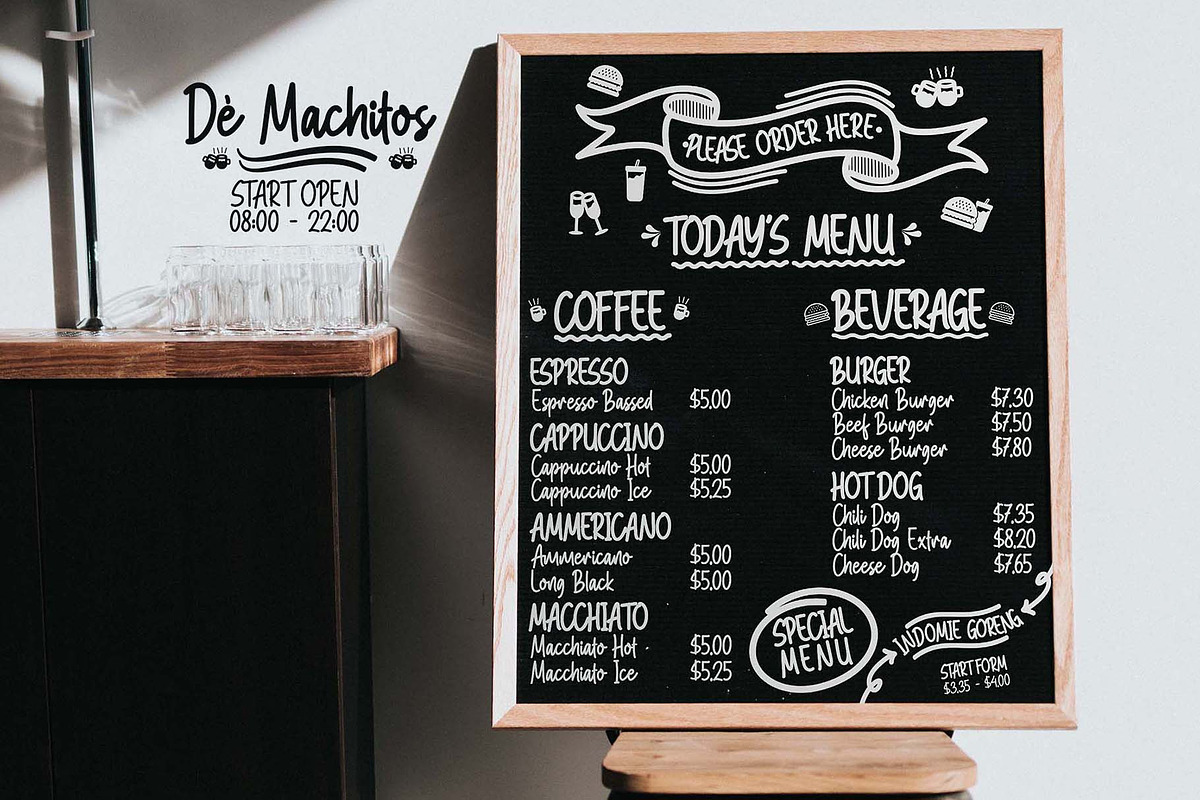 Dė Machitos
START OPEN
08:00 - 22:00
•PLEASE ORDER HERE•
TODAY'S MENU
COFFEE
ESPRESSO
Espresso Bassed $5.00
CAPPUCCINO
Cappuccino Hot $5.00
Cappuccino Ice $5.25
AMMERICANO
Ammericano $5.00
Long Black $5.00
MACCHIATO
Macchiato Hot $5.00
Macchiato Ice $5.25
BEVERAGE
BURGER
Chicken Burger $7.30
Beef Burger $7.50
Cheese Burger $7.80
HOT DOG
Chili Dog $7.35
Chili Dog Extra $8,20
Cheese Dog $7.65
SPECIAL
MENU
INDOMIE GORENG
START FORM
$3.35 - $4.00